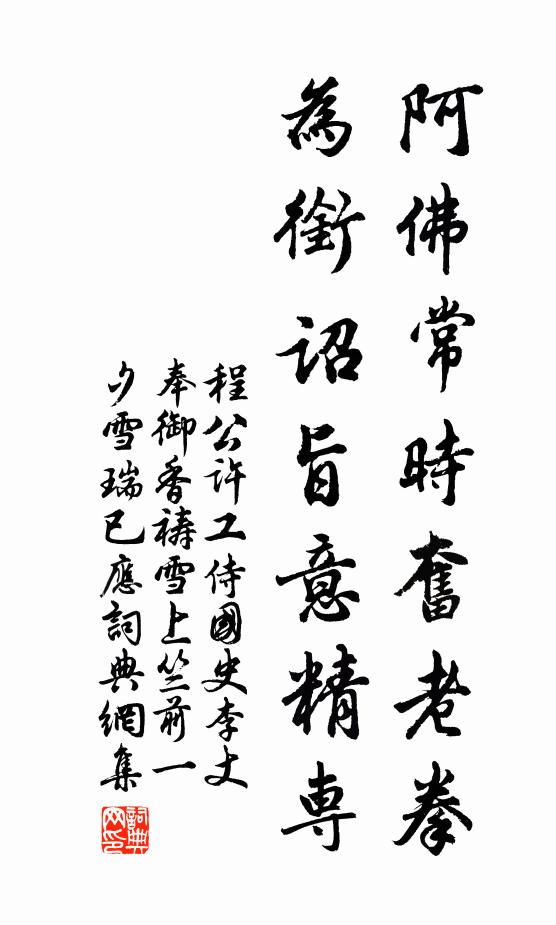 阿佛常時奮老拳
為銜詔旨意精専
程公許工侍國史李丈
奉御香禱雪上竺前一
夕雪瑞已應詞典網集
詞典网印